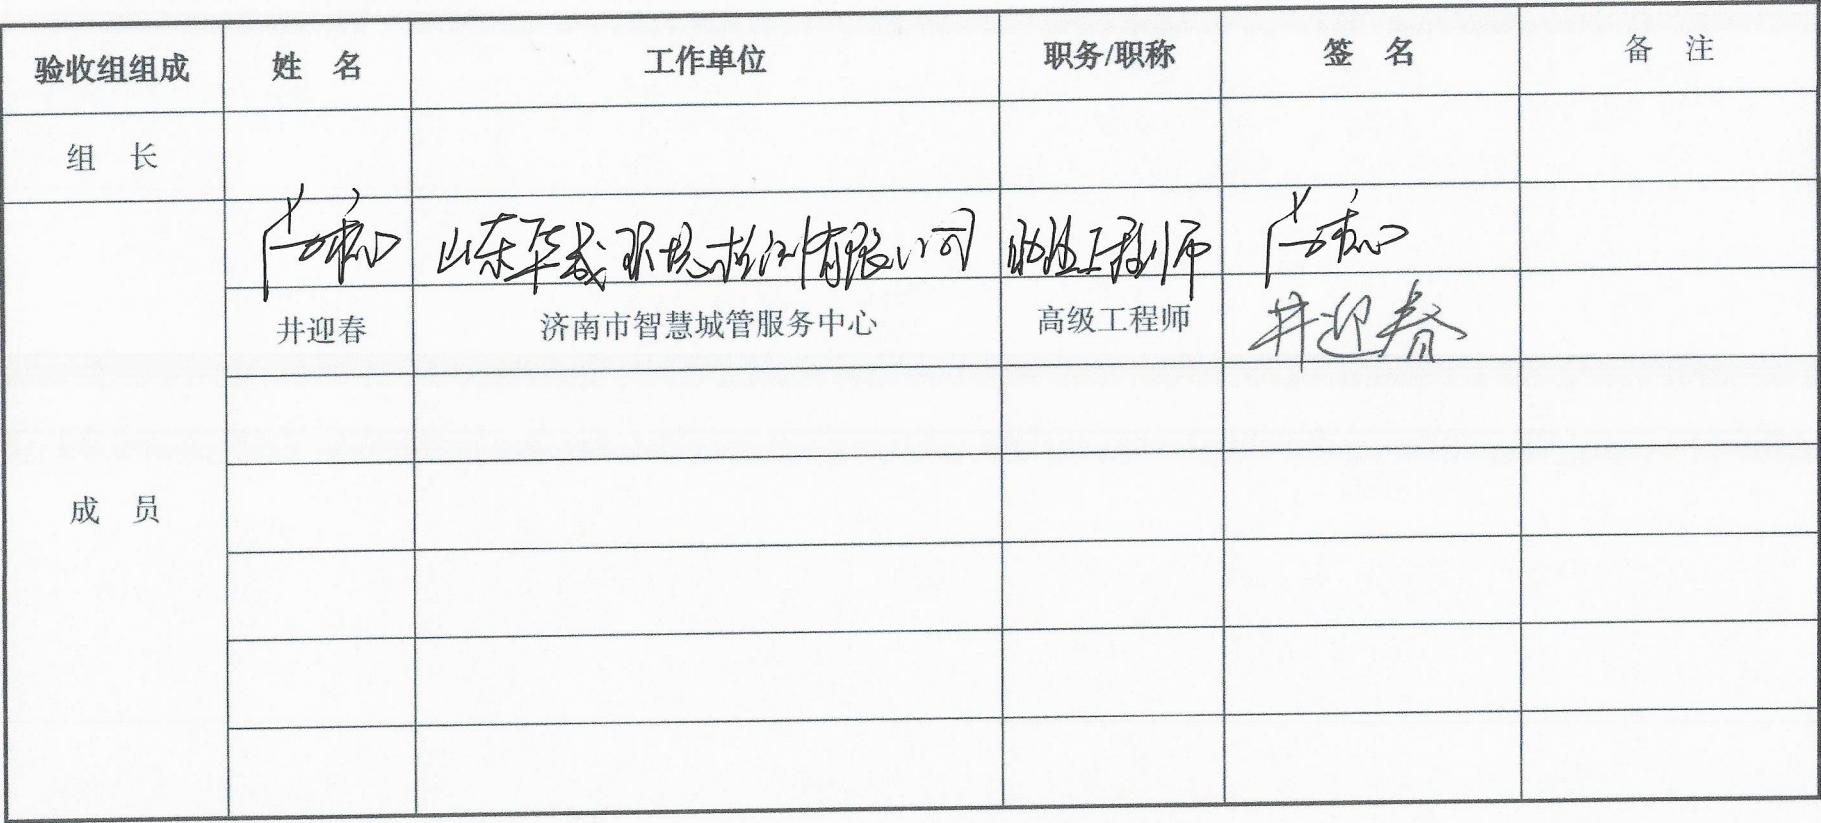 验收组组成 姓 名 工作单位 职务/职称 签 名 备 注
组 长
山东华晟环境检测有限公司 助理工程师
井迎春 济南市智慧城管服务中心 高级工程师 井迎春
成 员